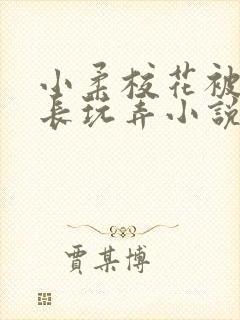 小柔校花被
长玩弄小説
贾某博